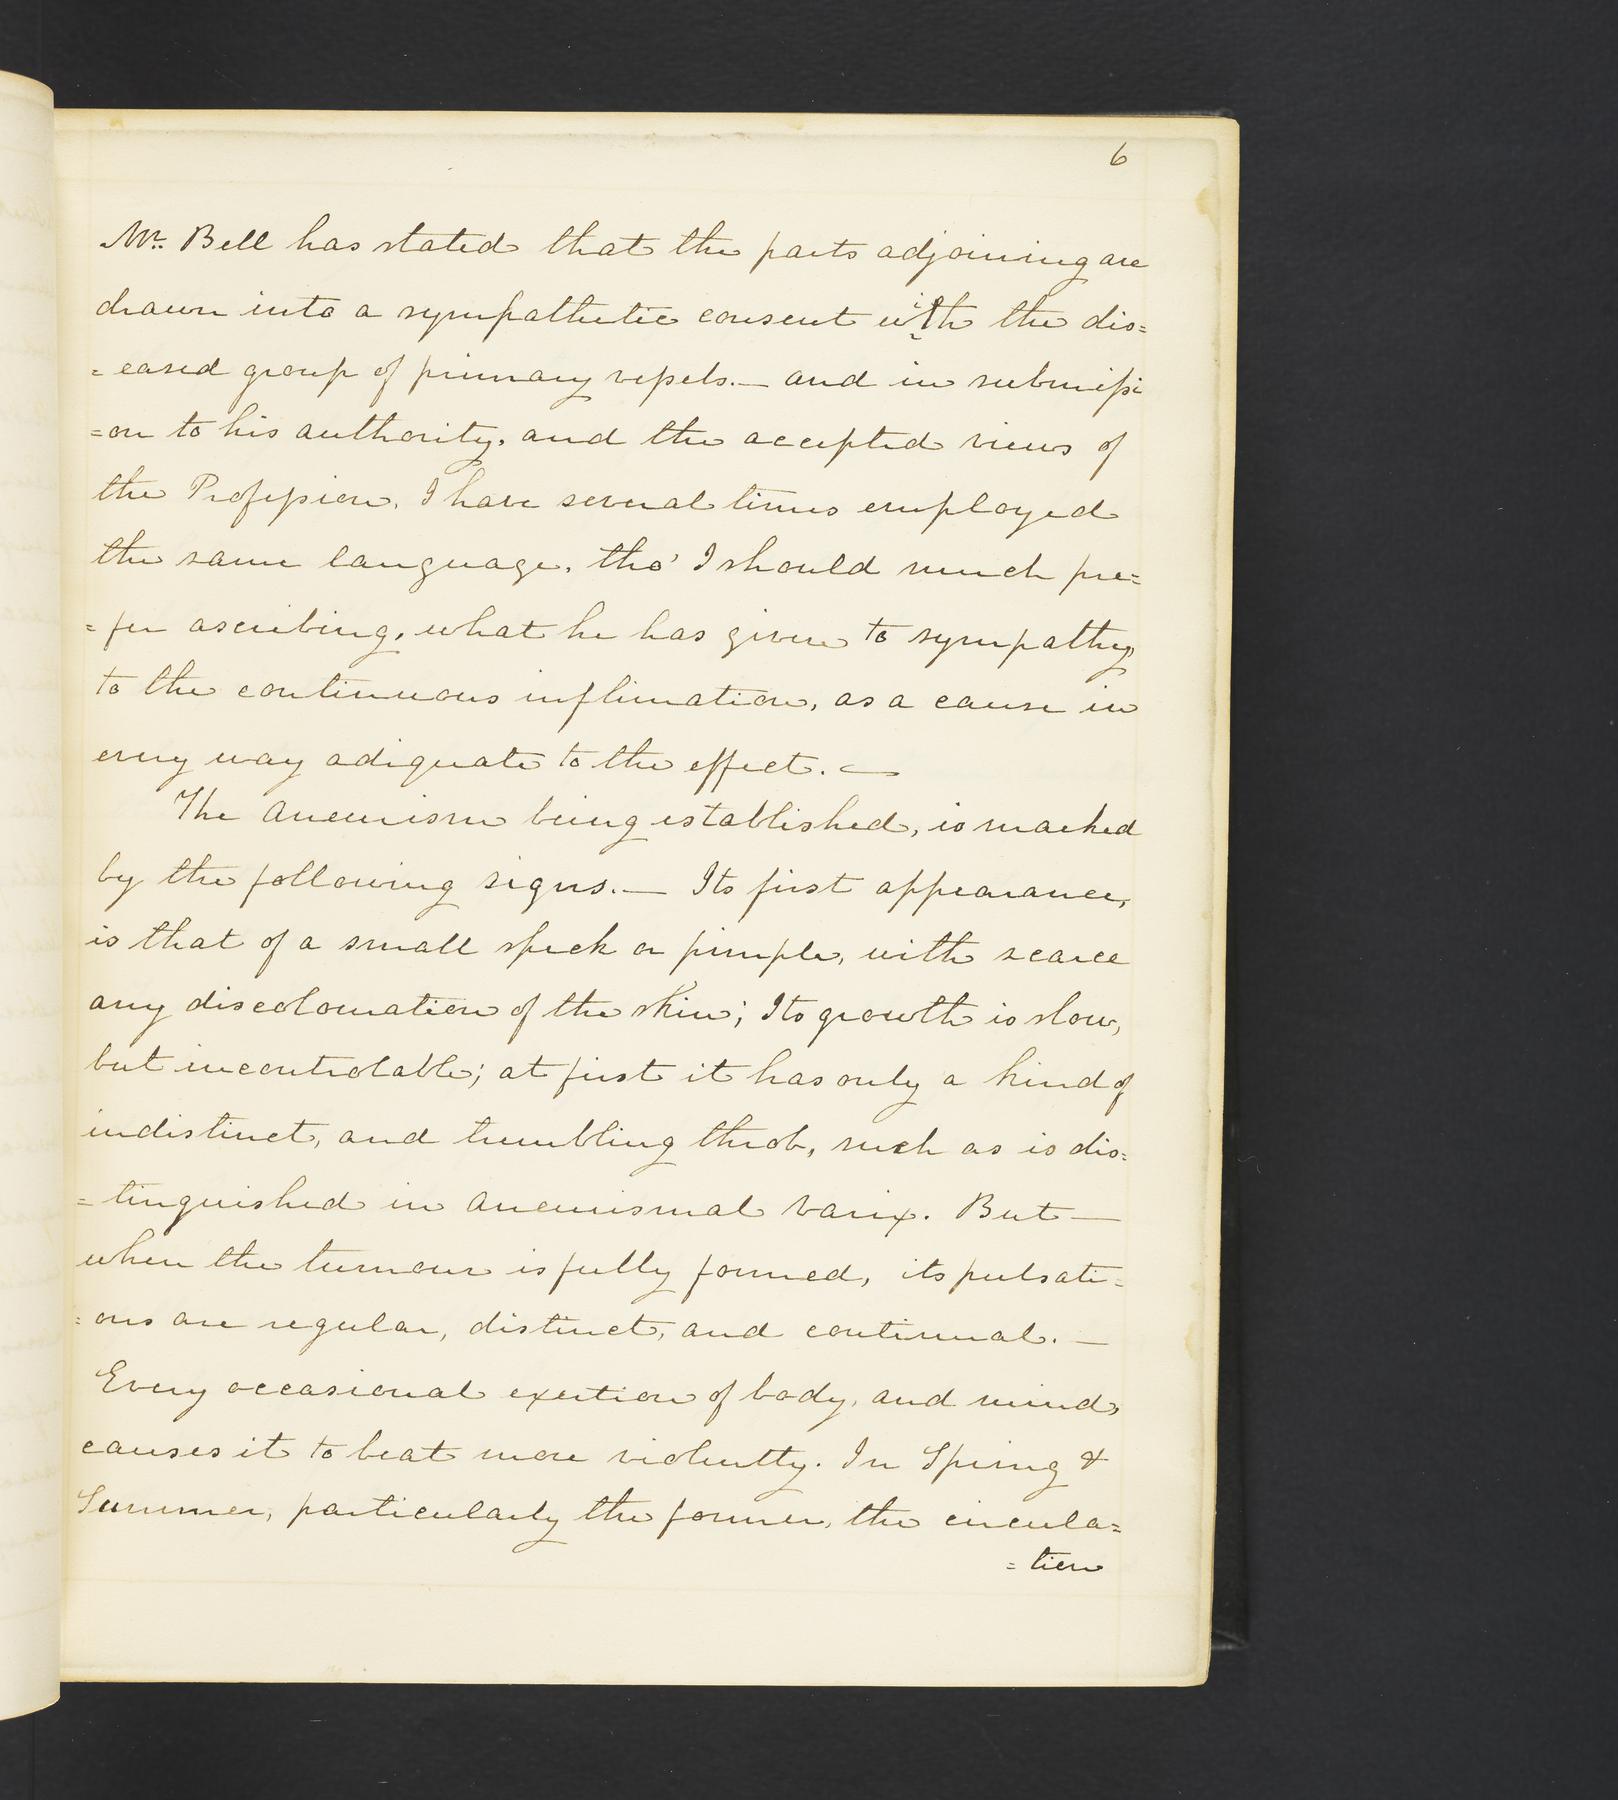 6
Mr. Bell has stated that the parts adjoining are
drawn into a sympathetic consent with the dis=
=eased group of primary vessels.— and in submissi
=on to his authority, and the accepted views of
the Profession, I have several times employed
the same language, tho' I should much pre=
=fer ascribing, what he has given to sympathy,
to the continuous inflimation, as a cause in
every way adiquate to the effect.—
The aneurism being established, is marked
by the following signs.— Its first appearance,
is that of a small speck or pimple, with scarce
any discolouration of the skin; Its growth is slow,
but incontrolable; at first it has only a kind of
indistinct, and trumbling throb, such as is dis=
=tinguished in aneurismal Varix. But—
when the tumour is fully formed, its pulsati=
=ons are regular, distinct, and continual.—
Every occasional exertion of body, and mind,
causes it to beat more violently. In Spring &
Summer, particularly the former, the circula=
=tion